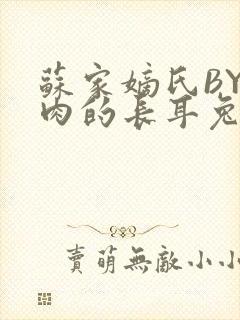 蘇家嫡氏BY
肉的長耳兔
賣萌無敵小小